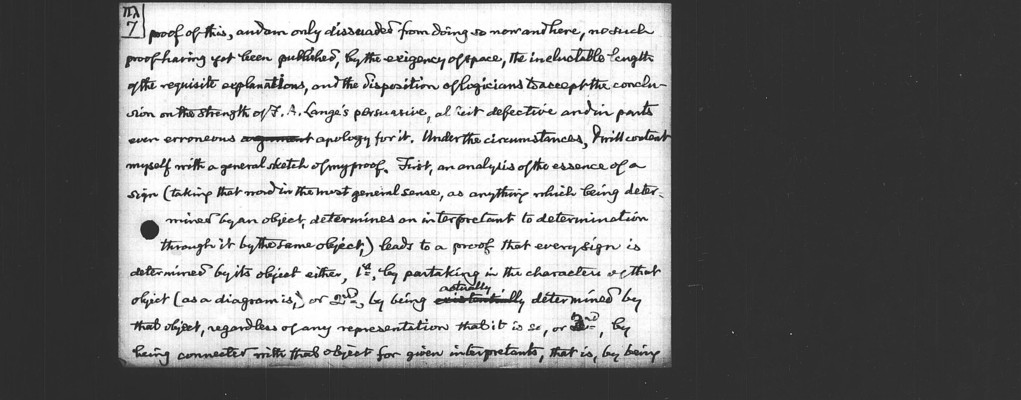 Πλ
7
proof of this, and am only dissuaded from doing so now and here, no such
proof having yet been published, by the exigency of space, the ineluctable length
of the requisite explanations, and the disposition of logicians to accept the conclu-
sion on the strength of F. A. Lange's persuasive, albeit defective and in parts
even erroneous argument apology for it. Under the circumstances, I will content
myself with a general sketch of my proof. First, an analysis of the essence of a
sign (taking that word in the most general sense, as anything which being deter-
mined by an object, determines an interpretant to determination
through it by the same object,) leads to a proof that every sign is
determined by its object either, 1st, by partaking in the characters of that
object (as a diagram is,) or 2nd, by being existentially actually determined by
that object, regardless of any representation that it is so, or 3rd, by
being connected with that object for given interpretants, that is, by being